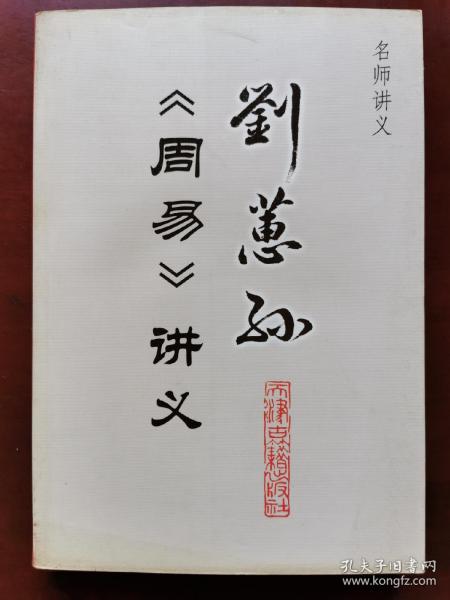 名师讲义
劉蕙孙
《周易》讲义
天津古籍出版社
孔夫子旧书网
www.kongfz.com